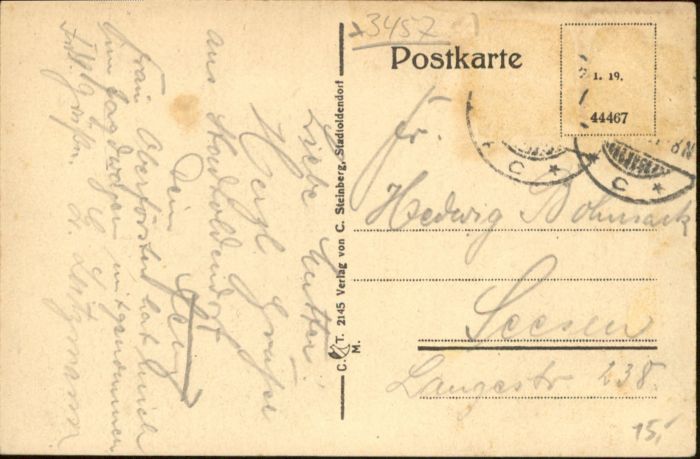 3457
Postkarte
1. 19.
44467
C
C
8N
Fr.
Hedwig Bohmsack
Seesen
Langestr. 238.
15,
C. T. M. 2145 Verlag von C. Steinberg, Stadtoldendorf
Liebe Mutter!
Herzl. Grüße
aus Stadtoldendorf
Dein
Frau Oberförster hat mich
im Jagdwagen mitgenommen